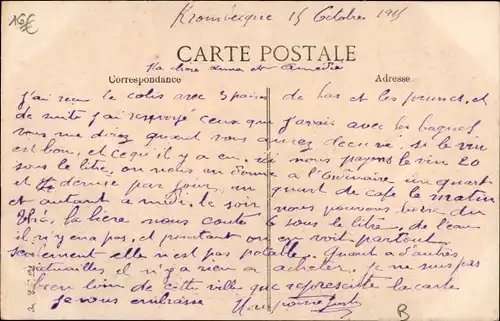 Krombecque 15 Octobre 1915
CARTE POSTALE
Ma chère Anna et Amédée
Correspondance
Adresse
J'ai reçu le colis avec 3 paires de bas et les prunes, et
de suite j'ai renvoyé ceux que j'avais avec les bagues
vous me direz quand vous aurez reçu. si le vin
est bon, et ce qu'il y a en. ici nous payons le vin 20
sous le litre, on nous en donne à l'ordinaire un quart
et demie par jour, un quart de café le matin
et autant à midi, le soir nous pouvons boire du
thé, la bière nous coute 6 sous le litre, de l'eau
il n'y en a pas, et pourtant on en voit partout
seulement elle n'est pas potable. Quant à d'autres
victuailles il n'y a rien a acheter. Je ne suis pas
bien loin de cette ville que représente la carte
je vous embrasse
B